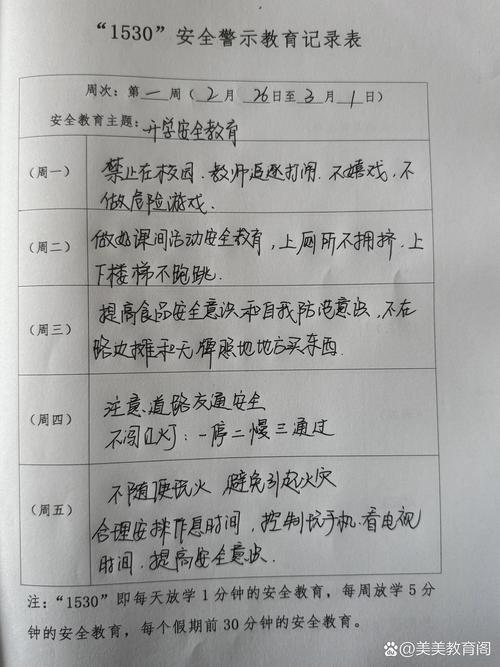 “1530”安全警示教育记录表
周次：第一周（2月26日至3月1日）
安全教育主题：开学安全教育
（周一）
禁止在校园、教师追逐打闹.不嬉戏,不
做危险游戏.
（周二）
做好课间活动安全教育,上厕所不拥挤,上
下楼梯不跑跳.
（周三）
提高食品安全意识和自我防范意识,不在
路边摊和无牌照地地方买东西.
（周四）
注意道路交通安全
不闯红灯:一停二慢三通过
（周五）
不随便玩火 避免引起火灾
合理安排作息时间,控制玩手机.看电视
时间.提高安全意识.
注：“1530”即每天放学1分钟的安全教育，每周放学5分
钟的安全教育，每个假期前30分钟的安全教育。
美美教育阁